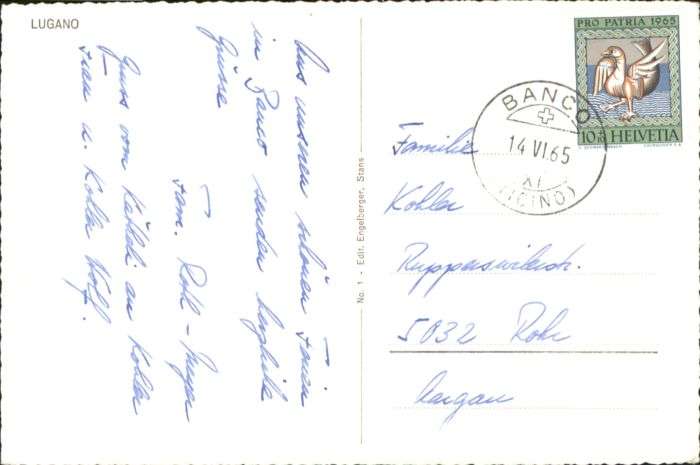 LUGANO
Aus unseren schönen Ferien
in Banco senden herzliche
Grüsse
Fam. Roth - Meyer
Gruss vom Kätheli an Kohler
Frau u. Kohler Wolf.
No. 1 - Edit. Engelberger, Stans
PRO PATRIA 1965
10+10 HELVETIA
BANCO
14 VI.65
(TICINO)
Familie
Kohler
Rupperswilerstr.
5032 Rohr
Aargau